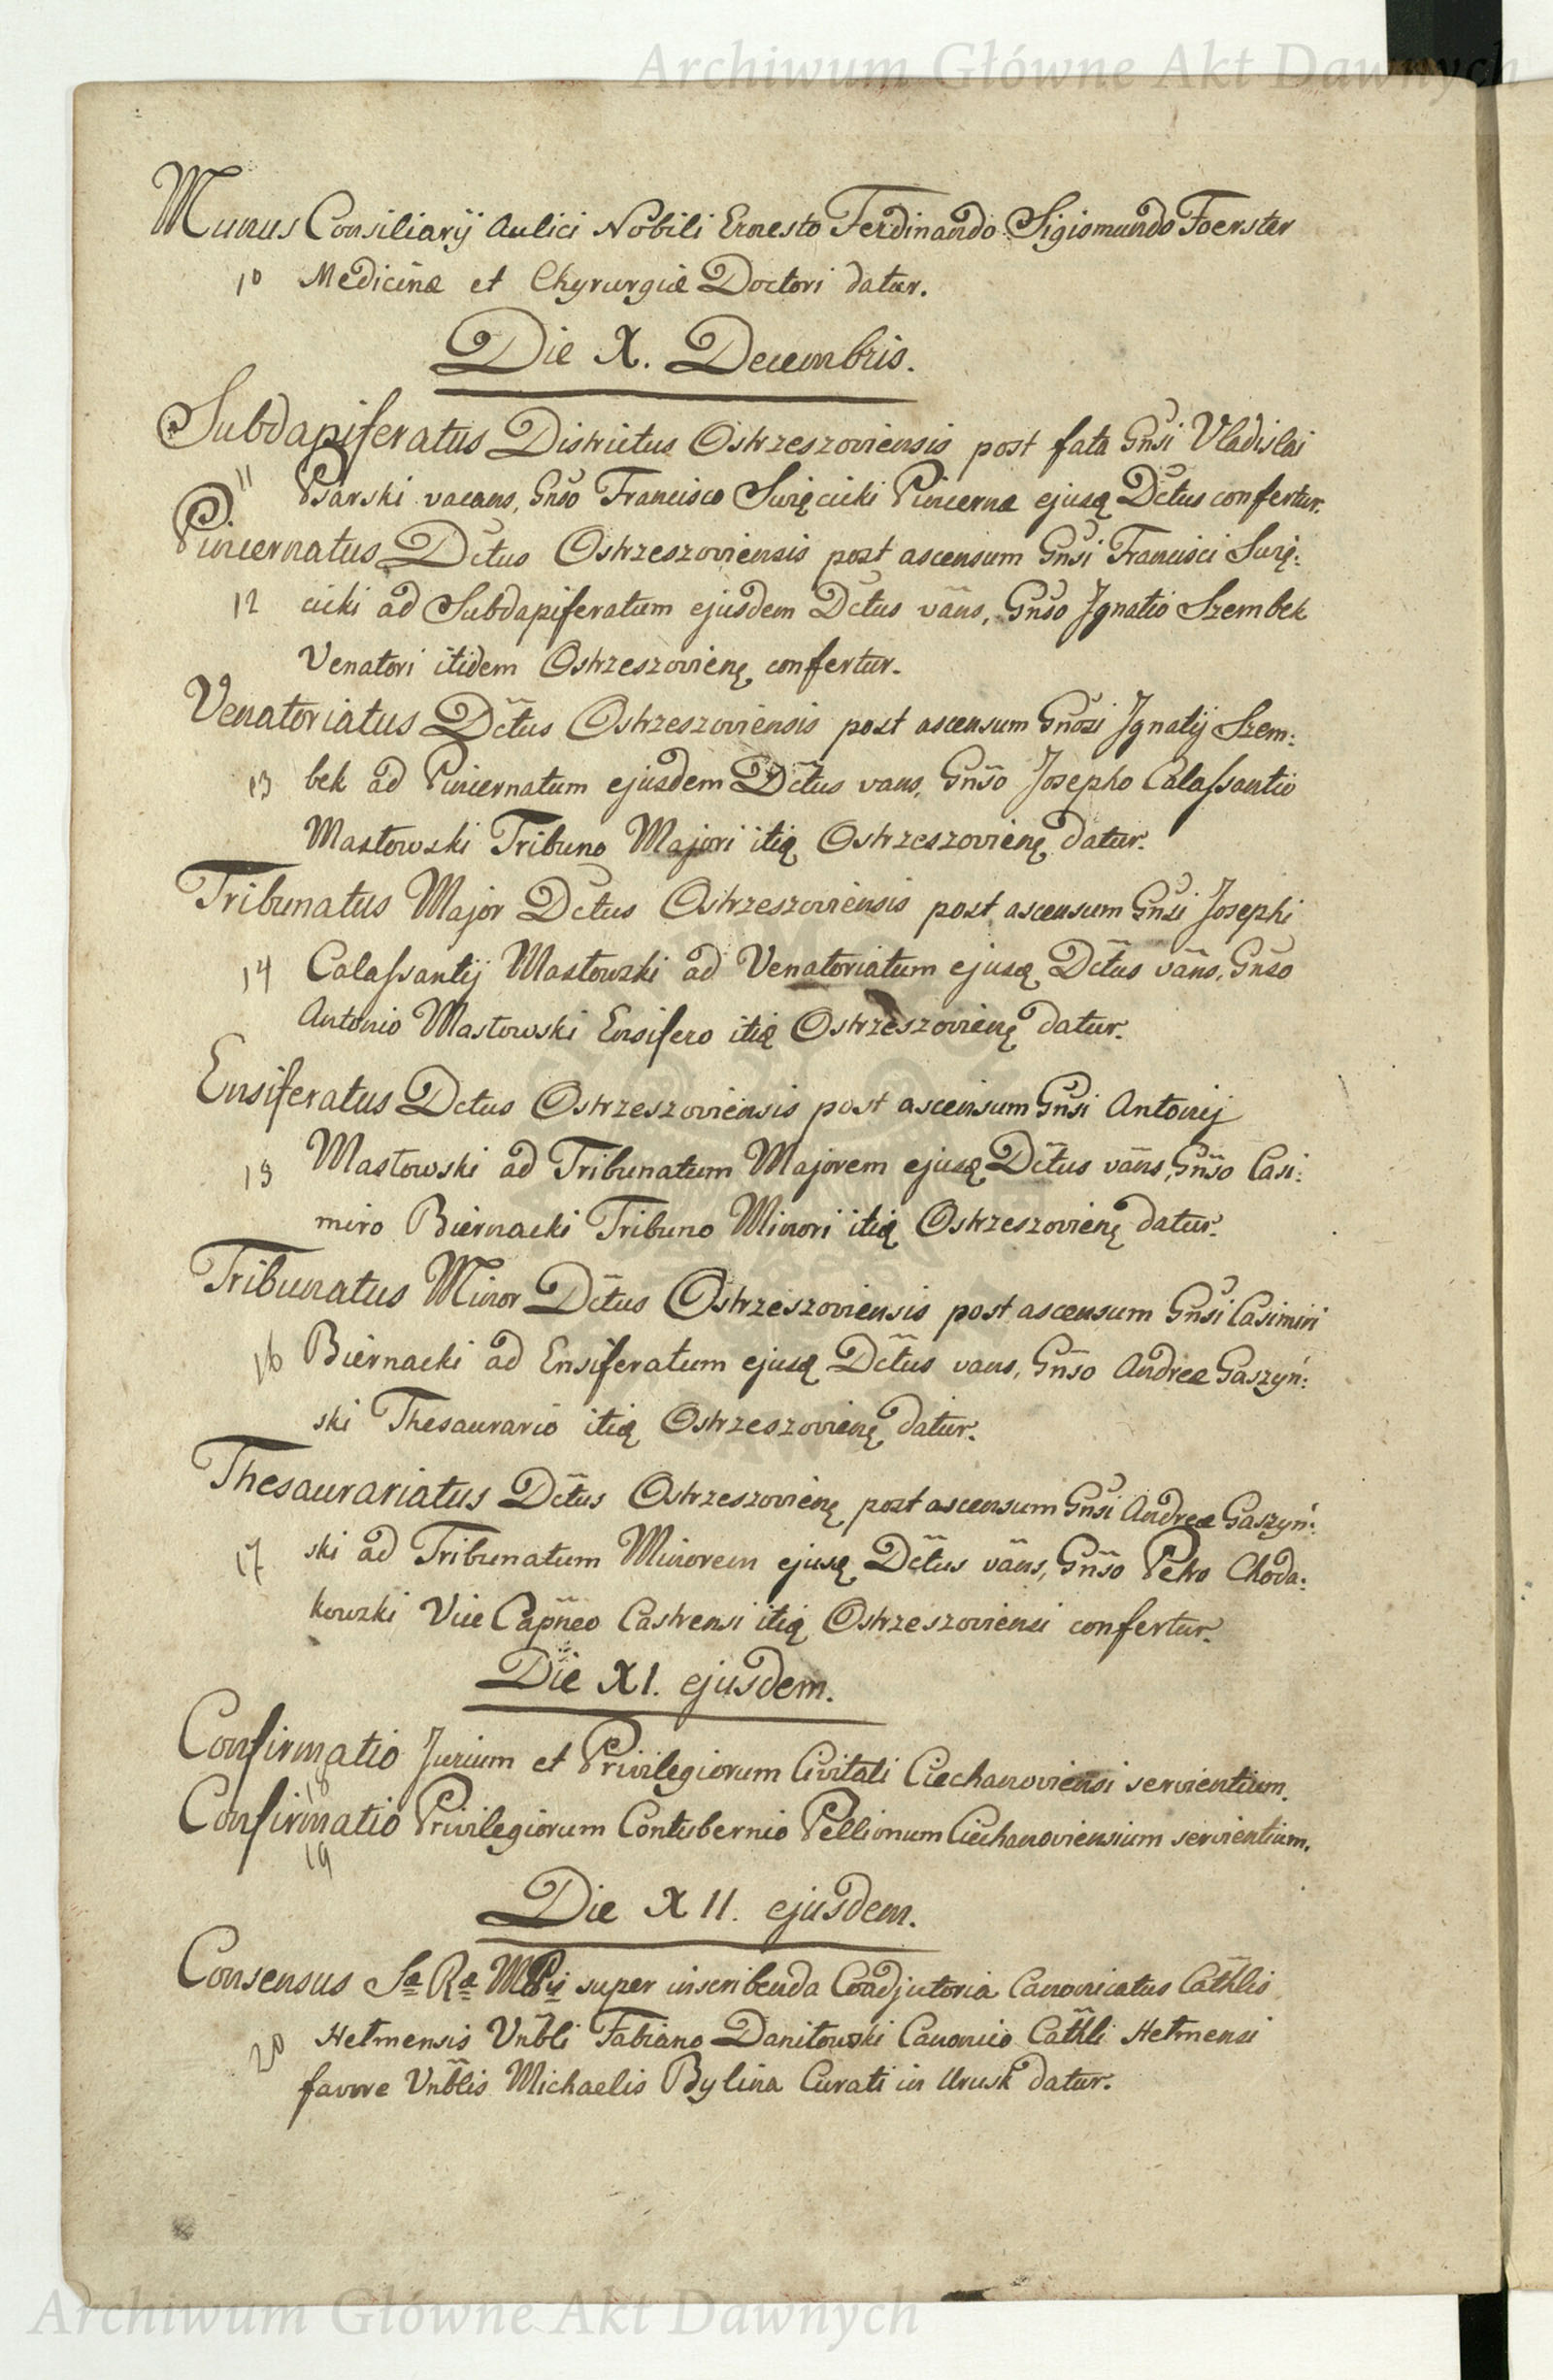 Archiwum Główne Akt Dawnych
Munus Consiliarij Aulici Nobili Ernesto Ferdinando Sigismundo Foerster
10 Medicinæ et Chyrurgiæ Doctori datur.
Die X. Decembris.
Subdapiferatus Districtus Ostrzeszoviensis post fata Gnsi Vladislai
11 Psarski vacans, Gnso Francisco Swięcicki Pincernæ ejusq Dctus confertur.
Pincernatus Dctus Ostrzeszoviensis post ascensum Gnsi Francisci Swię:
12 cicki ad Subdapiferatum ejusdem Dctus vãns, Gnso Jgnatio Szembek
Venatori itidem Ostrzeszovienę confertur.
Venatoriatus Dctus Ostrzeszoviensis post ascensum Gnosi Jgnatij Szem:
13 bek ad Pincernatum ejusdem Dctus vans, Gnso Josepho Calassantio
Masłowski Tribuno Majori itią Ostrzeszovienę datur.
Tribunatus Major Dctus Ostrzeszoviensis post ascensum Gnsi Josephi
14 Calassantij Masłowski ad Venatoriatum ejusą Dctus vãns, Gnso
Antonio Masłowski Ensifero itią Ostrzeszovienę datur.
Ensiferatus Dctus Ostrzeszoviensis post ascensum Gnsi Antonij
15 Masłowski ad Tribunatum Majorem ejusą Dctus vãns, Gnso Casi:
miro Biernacki Tribuno Minori itią Ostrzeszovienę datur.
Tribunatus Minor Dctus Ostrzeszoviensis post ascensum Gnsi Casimiri
16 Biernacki ad Ensiferatum ejusą Dctus vans, Gnso Andreæ Gaszyń:
ski Thesaurario itią Ostrzeszovienę datur.
Thesaurariatus Dctus Ostrzeszovienę post ascensum Gnsi Andreæ Gaszyń:
17 ski ad Tribunatum Minorem ejusą Dctus vãns, Gnso Petro Choda:
kowski Vice Capneo Castrensi itią Ostrzeszoviensi confertur.
Die XI. ejusdem.
Confirmatio Jurium et Privilegiorum Civitati Ciechanoviensi servientium.
18
Confirmatio Privilegiorum Contubernio Pellionum Ciechanoviensium servientium.
19
Die XII. ejusdem.
Consensus Sæ Ræ super inscribenda Coadjutoria Canonicatus Cathlis
20 Hełmensis Vnbli Fabiano Daniłowski Canonico Cathli Hełmensi
favore Vnblis Michaelis Bylina Curati in Urusk datur.
Archiwum Główne Akt Dawnych